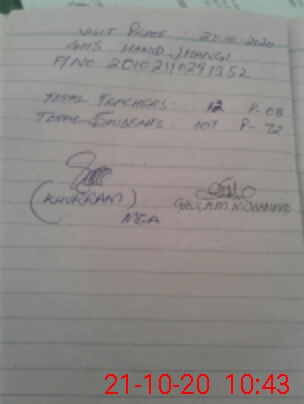 VISIT PROOF : 21-10-2020
GHS HAMID JHANGI
P/NO: 20102110291352
TOTAL TEACHERS: 12 P-08
TOTAL : 107 P-72
(KHURRAM)
MEA
GHULAM
21-10-20 10:43